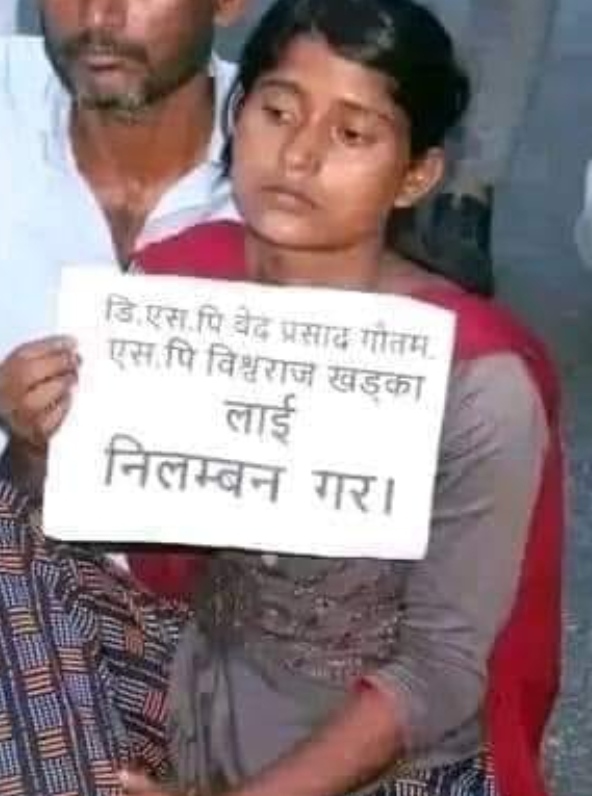 डि.एस.पि वेद प्रसाद गौतम
एस.पि विश्वराज खड्का
लाई
निलम्बन गर।